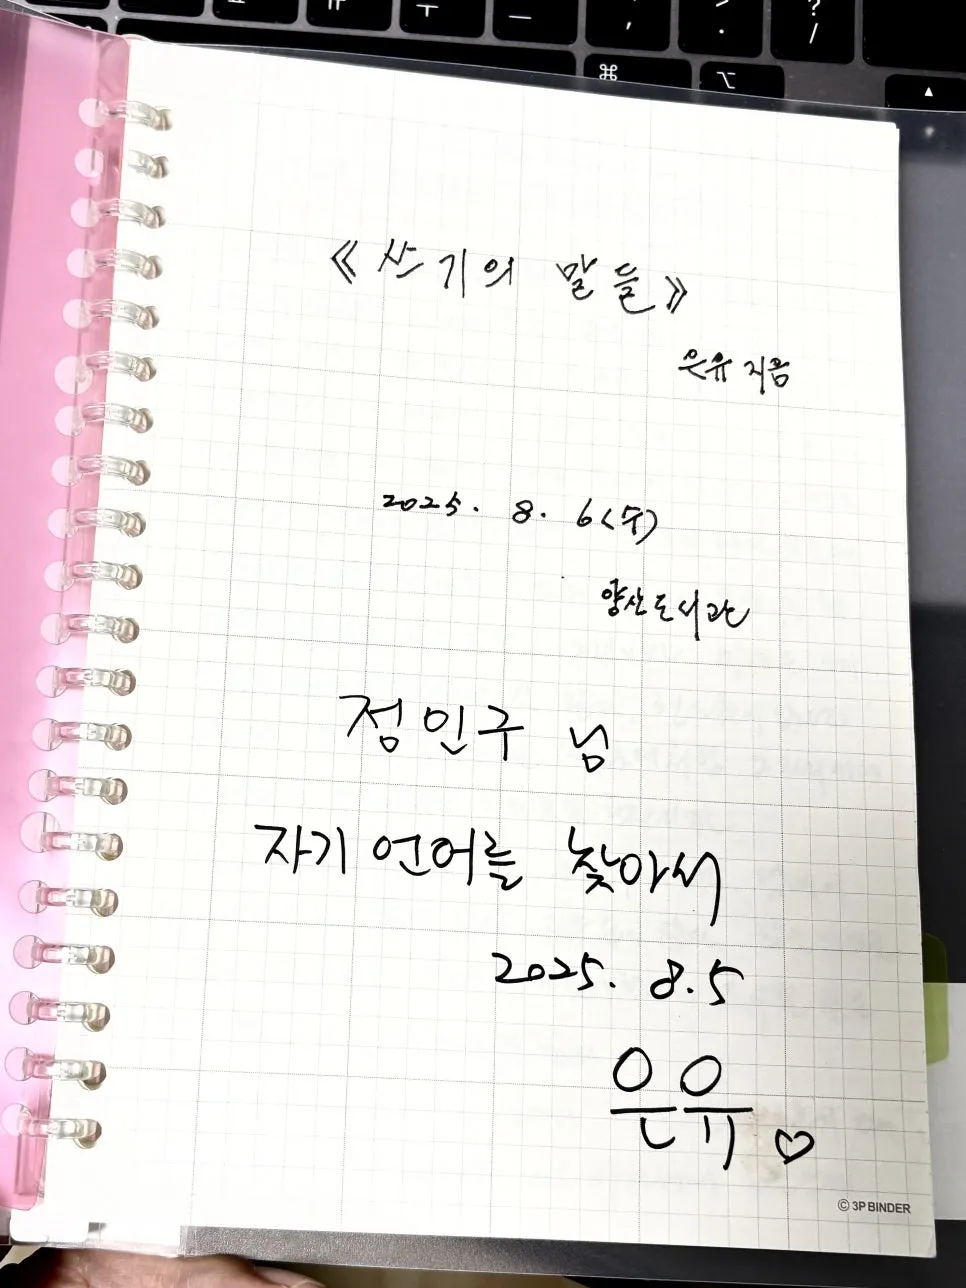 ㅠ ㅜ ㅡ , > . ? /
⌘ ⌥ ▲
《쓰기의 말들》
은유 지음
2025. 8. 6(수)
양산도서관
정인구 님
자기 언어를 찾아서
2025. 8. 5
은유 ♡
© 3P BINDER